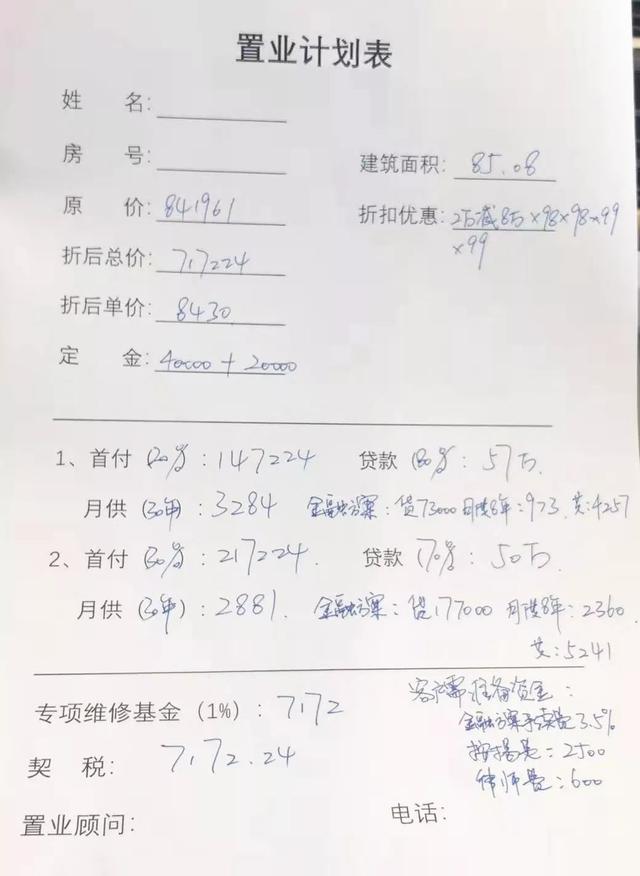 置业计划表
姓 名:
房 号:
建筑面积: 85.08
原 价: 841961
折扣优惠: 2万减8万×98×98×99
×99
折后总价: 717224
折后单价: 8430
定 金: 40000 + 20000
1、首付 (20%): 147224 贷款 (80%): 57万.
月供 (30年): 3284 金融方案: 贷73000 月供8年: 973. 共: 4257
2、首付 (30%): 217224. 贷款 (70%): 50万.
月供 (30年): 2881. 金融方案: 贷177000 月供8年: 2360.
共: 5241
专项维修基金 (1%): 7172
契 税: 7172.24
客户需准备资金:
金融方案手续费3.5%
按揭费=2500
律师费: 600
置业顾问:
电话: